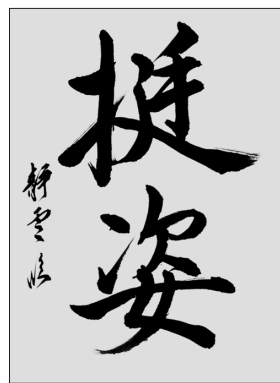 挺姿
静雲臨